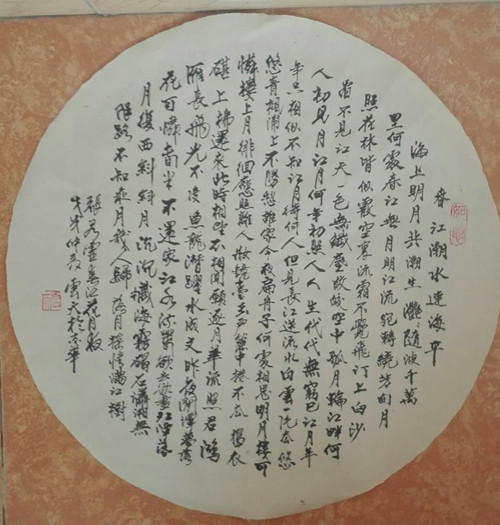 春江潮水連海平
海上明月共潮生灧灧隨波千萬
里何處春江無月明江流宛轉繞芳甸月
照花林皆似霰空裏流霜不覺飛汀上白沙
看不見江天一色無纖塵皎皎空中孤月輪江畔何
人初見月江月何年初照人人生代代無窮已江月年
年只相似不知江月待何人但見長江送流水白雲一片去悠
悠青楓浦上不勝愁誰家今夜扁舟子何處相思明月樓可
憐樓上月徘徊應照離人妝鏡台玉戶簾中捲不去搗衣
砧上拂還來此時相望不相聞願逐月華流照君鴻
雁長飛光不度魚龍潛躍水成文昨夜閑潭夢落
花可憐春半不還家江水流春去欲盡江潭落
月復西斜斜月沉沉藏海霧碣石瀟湘無
限路不知乘月幾人歸落月搖情滿江樹
張若虛春江花月夜
仲夏雲天於京華